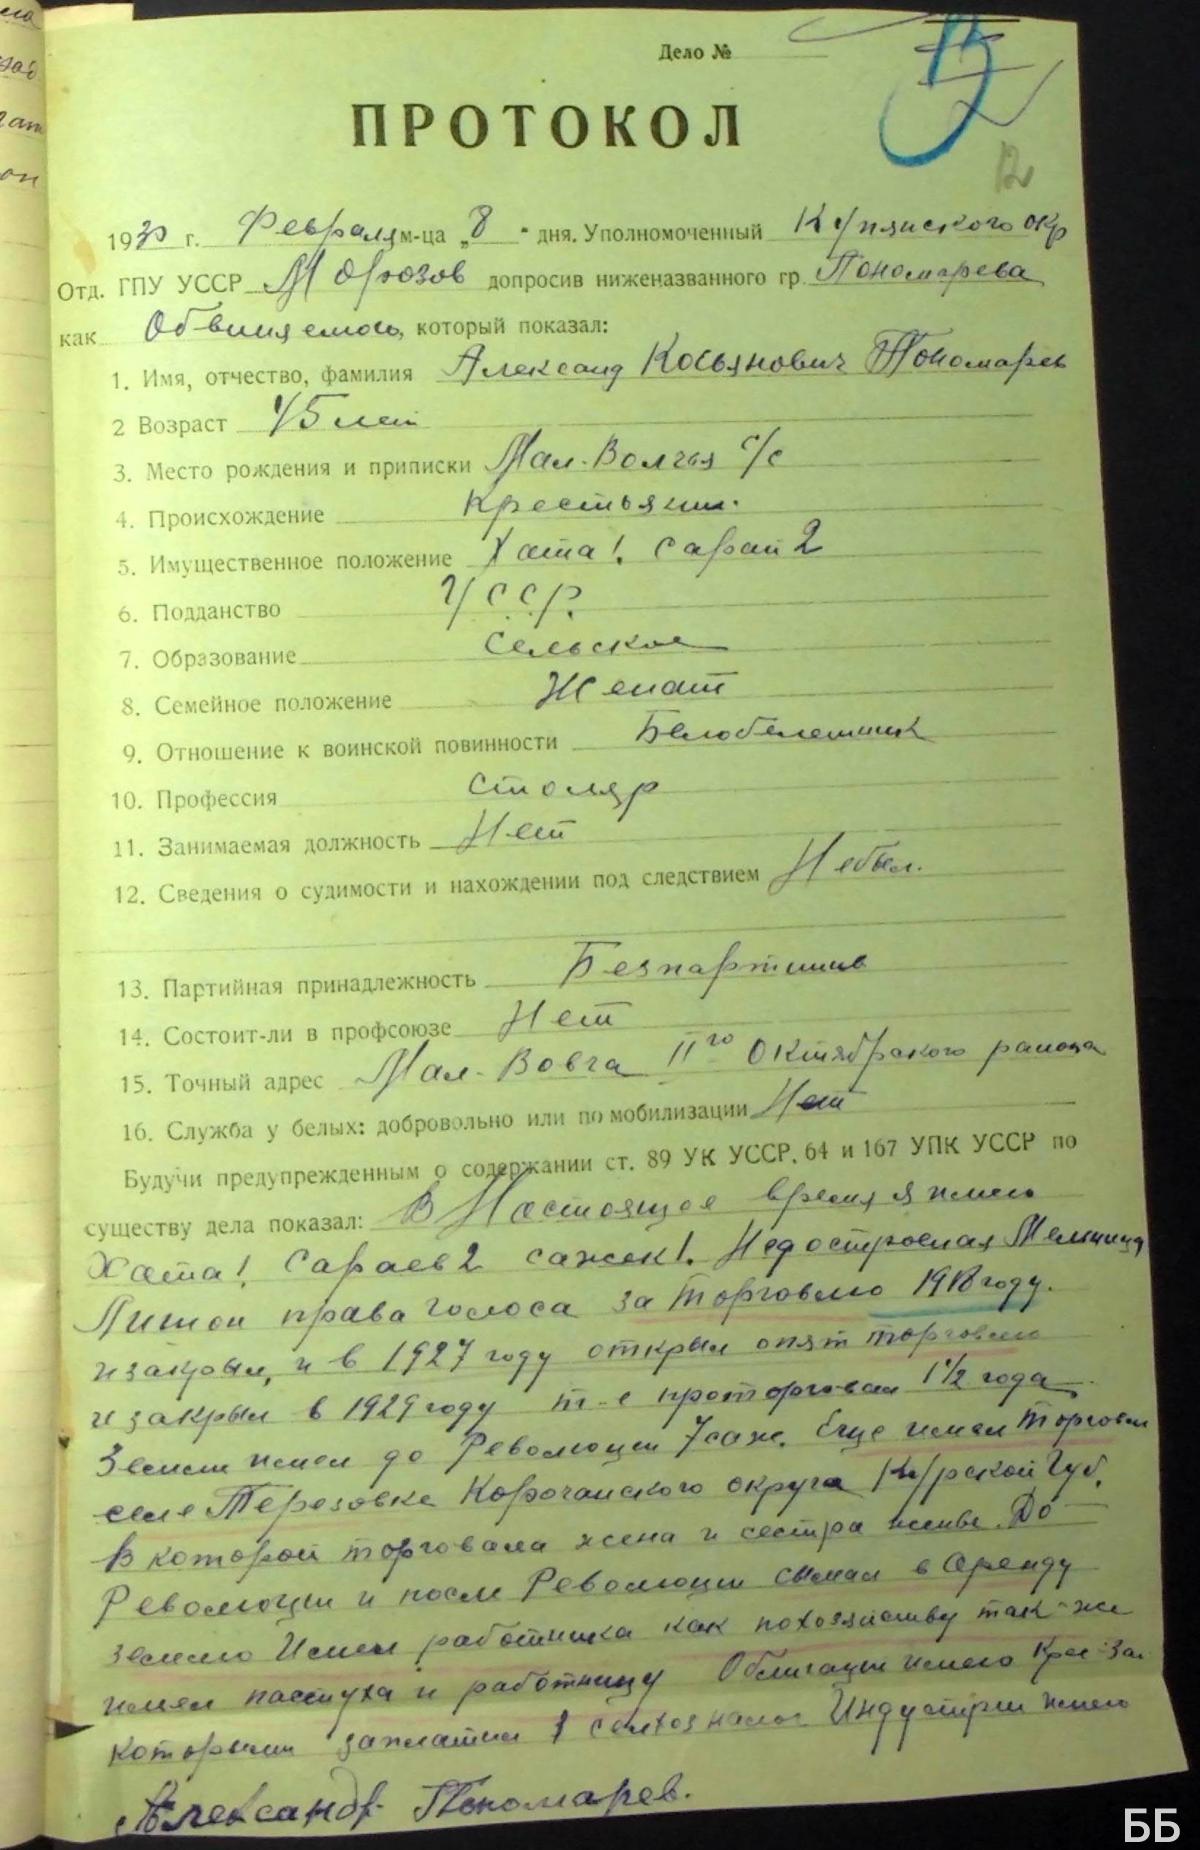 Дело №
13
12
ПРОТОКОЛ
1930 г. Февраля м-ца „8“ дня. Уполномоченный Купянского окр
Отд. ГПУ УССР Морозов допросив ниженазванного гр. Пономарева
как Обвиняемого, который показал:
1. Имя, отчество, фамилия Александ Косьянович Пономарев
2 Возраст 45 лет
3. Место рождения и приписки Мал-Волчья с/с
4. Происхождение Крестьянин.
5. Имущественное положение Хата 1. сарай 2
6. Подданство УССР.
7. Образование Сельское
8. Семейное положение Женат
9. Отношение к воинской повинности Белобелетник
10. Профессия Столяр
11. Занимаемая должность Нет
12. Сведения о судимости и нахождении под следствием Небыл.
13. Партийная принадлежность Безпартийнв
14. Состоит-ли в профсоюзе Нет
15. Точный адрес Мал-Вовча II го Октябрского района
16. Служба у белых: добровольно или по мобилизации Нет
Будучи предупрежденным о содержании ст. 89 УК УССР. 64 и 167 УПК УССР по
существу дела показал: В Настоящое время я имею
Хата 1. Сараев 2 сажек 1. Недостроеная Мелница
Лишон права голоса за торговлю 1918 году.
и закрыл, и в 1927 году открыл опят торговлю
и закрыл в 1929 году т-е проторговал 1 1/2 года
Земли имел до Революции 7 саж. Еще имел торговл
селе Терезовке Корочанского округа Курской Губ.
В которой торговала жена и сестра жены. До
Революции и после Революции сымал в Аренду
землю Имел работника как похозяйству так-же
имел пастуха и работницу Облигации имею Крес-Зай
которыми заплатил сельхозналог Индустрии имею
Александр Пономарев.
ББ